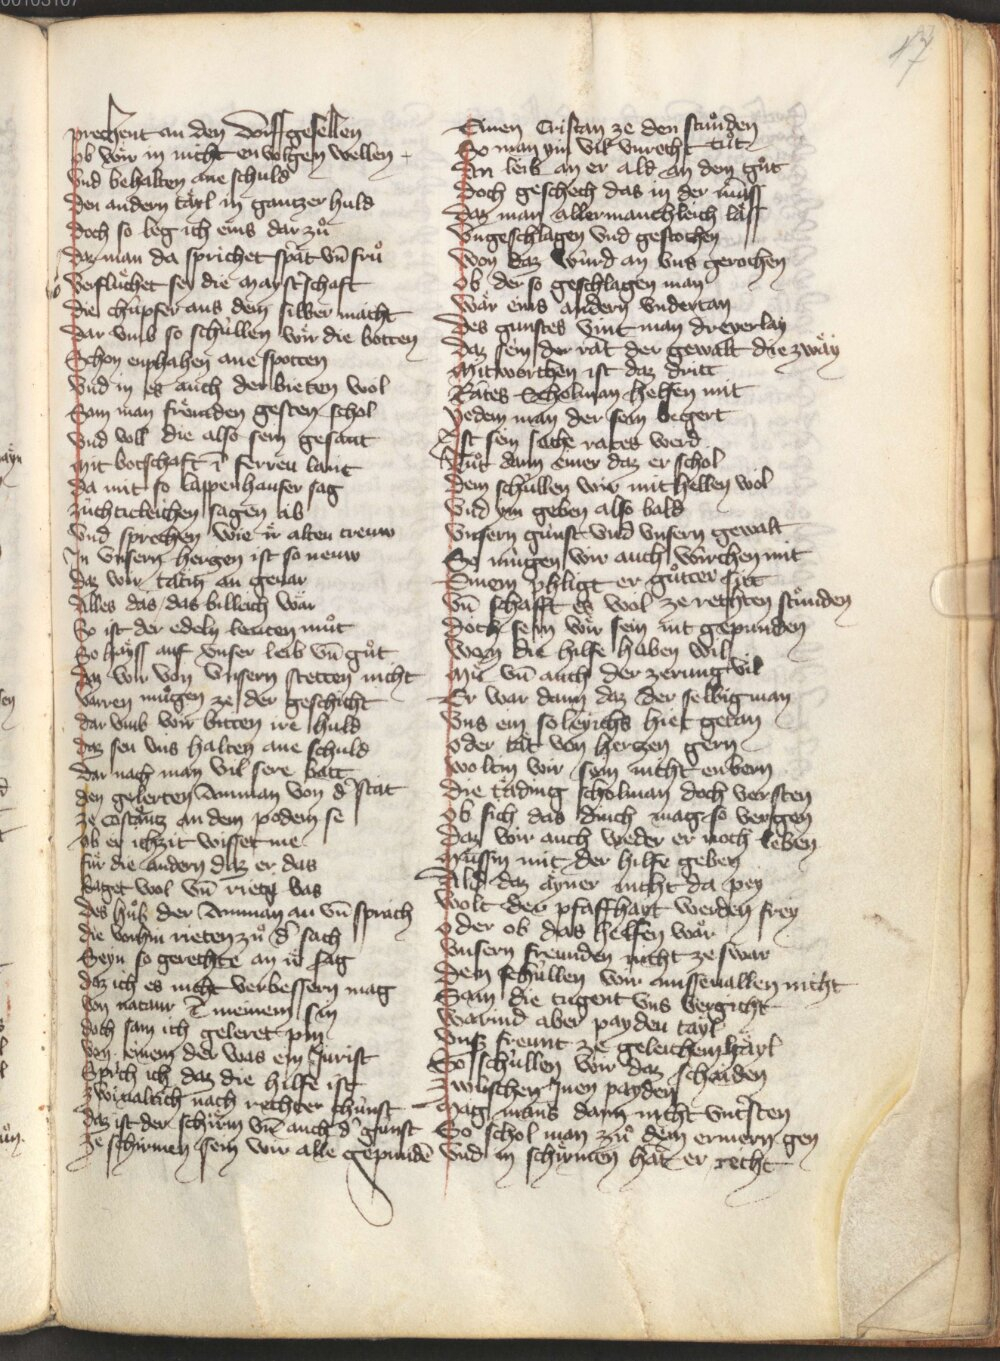 47
prechent an den dorff gesellen
ob wir in nicht envolgen wellen
Und behalten ane schuld
Den andern tail in gantzer huld
Doch so leg ich eins dar zů
Daz man da sprichet spat vn̄ frů
Verflůchet sey die maysterschaft
Die chupfer aus dem silber macht
Dar vmb so schüllen wir die botten
Schon enphahen ane spotten
Und in es auch derbieten wol
Sam man frömden gesten schol
Und voll die also sein gesant
Mit botschaft in ferreu lant
Da mit so lappenhauser sag
Zůchtickleichen sagen lib
Und sprechen wie ir alten treuw
In vnsern hertzen ist so neuw
Daz wir tätin an gevar
Alles das das billeich wär
So ist der edeln leuten můt
So hayss auf vnser leib vn̄ gůt
Daz wir von vnsern stetten nicht
Varen mügen ze der geschicht
Dar vmb wir bitten ire huld
Daz seu vns halten ane schuld
Dar nach man vil sere batt
Den gelerten Amman von der stat
Ze Costäntz an dem podem se
Ob er ichzit wisset me
Für die andern daz er das
Saget wol vn̄ riete bas
Des hůb der Amman an vn̄ sprach
Die vorhin rieten zů der sach
Seyn so gerechte an ir sag
Daz ich es nicht verbessern mag
Von nataur in meinem sin
Doch sam ich geleret pin
Von einem der was ein Jurist
Sprich ich daz die hilfe ist
Zwivaltich nach rechter chünst
Daz ist der schirm vn̄ auch der gunst
Ze schirmen sein wir alle gepunden
Einen Cristan ze den stunden
So man ym vil vnrecht tůt
An leib an er ald an dem gůt
Doch geschech das in der mass
Daz man allermanchleich lass
Ungeschlagen vnd gestochen
Won daz würd an vns gerochen
Ob der so geschlagen man
Wär eins andern vndertan
Des gunstes vint man dreyerlay
Daz sein der rat der gewalt die zway
Mitworchen ist daz dritt
Rates schol man helfen mit
Yedem man der sein begert
Ist sein sache rates werd
Tůt dann einer daz er schol
Dem schüllen wir mithellen wol
Und ym geben also bald
Unsern gunst vnd vnsern gewalt
So mügen wir auch würchen mit
Einem phligt er gůtter sitt
Un̄ schafft es wol ze rechten stunden
Doch sein wir sein nit gepunden
Won die hilfe haben wil
Mü vn̄ auch der zerung vil
Er war dann daz der selbig man
Uns ein soleychs hiet getan
Oder tät von hertzen gern
Woltin wir sein nicht enbern
Die täding schol man doch versten
Ob sich das dinch mag so vergen
Daz wir auch weder er noch leben
Müssin mit der hilfe geben
Ald daz ayner nicht da pey
Wolt der pfaffhayt werden frey
Oder ob das helfen wär
Unsern freunden nicht ze swar
Dem schüllen wir missevallen nicht
Sam die tugent vns vergicht
Warind aber payden tayl
Unss freunt ze geleichem hayl
So schüllen wir daz schaiden
Zwüschen Inen payden
Mag mans dann nicht vntersten
So schol man zů dem ermern gen
Und in schirmen hat er recht